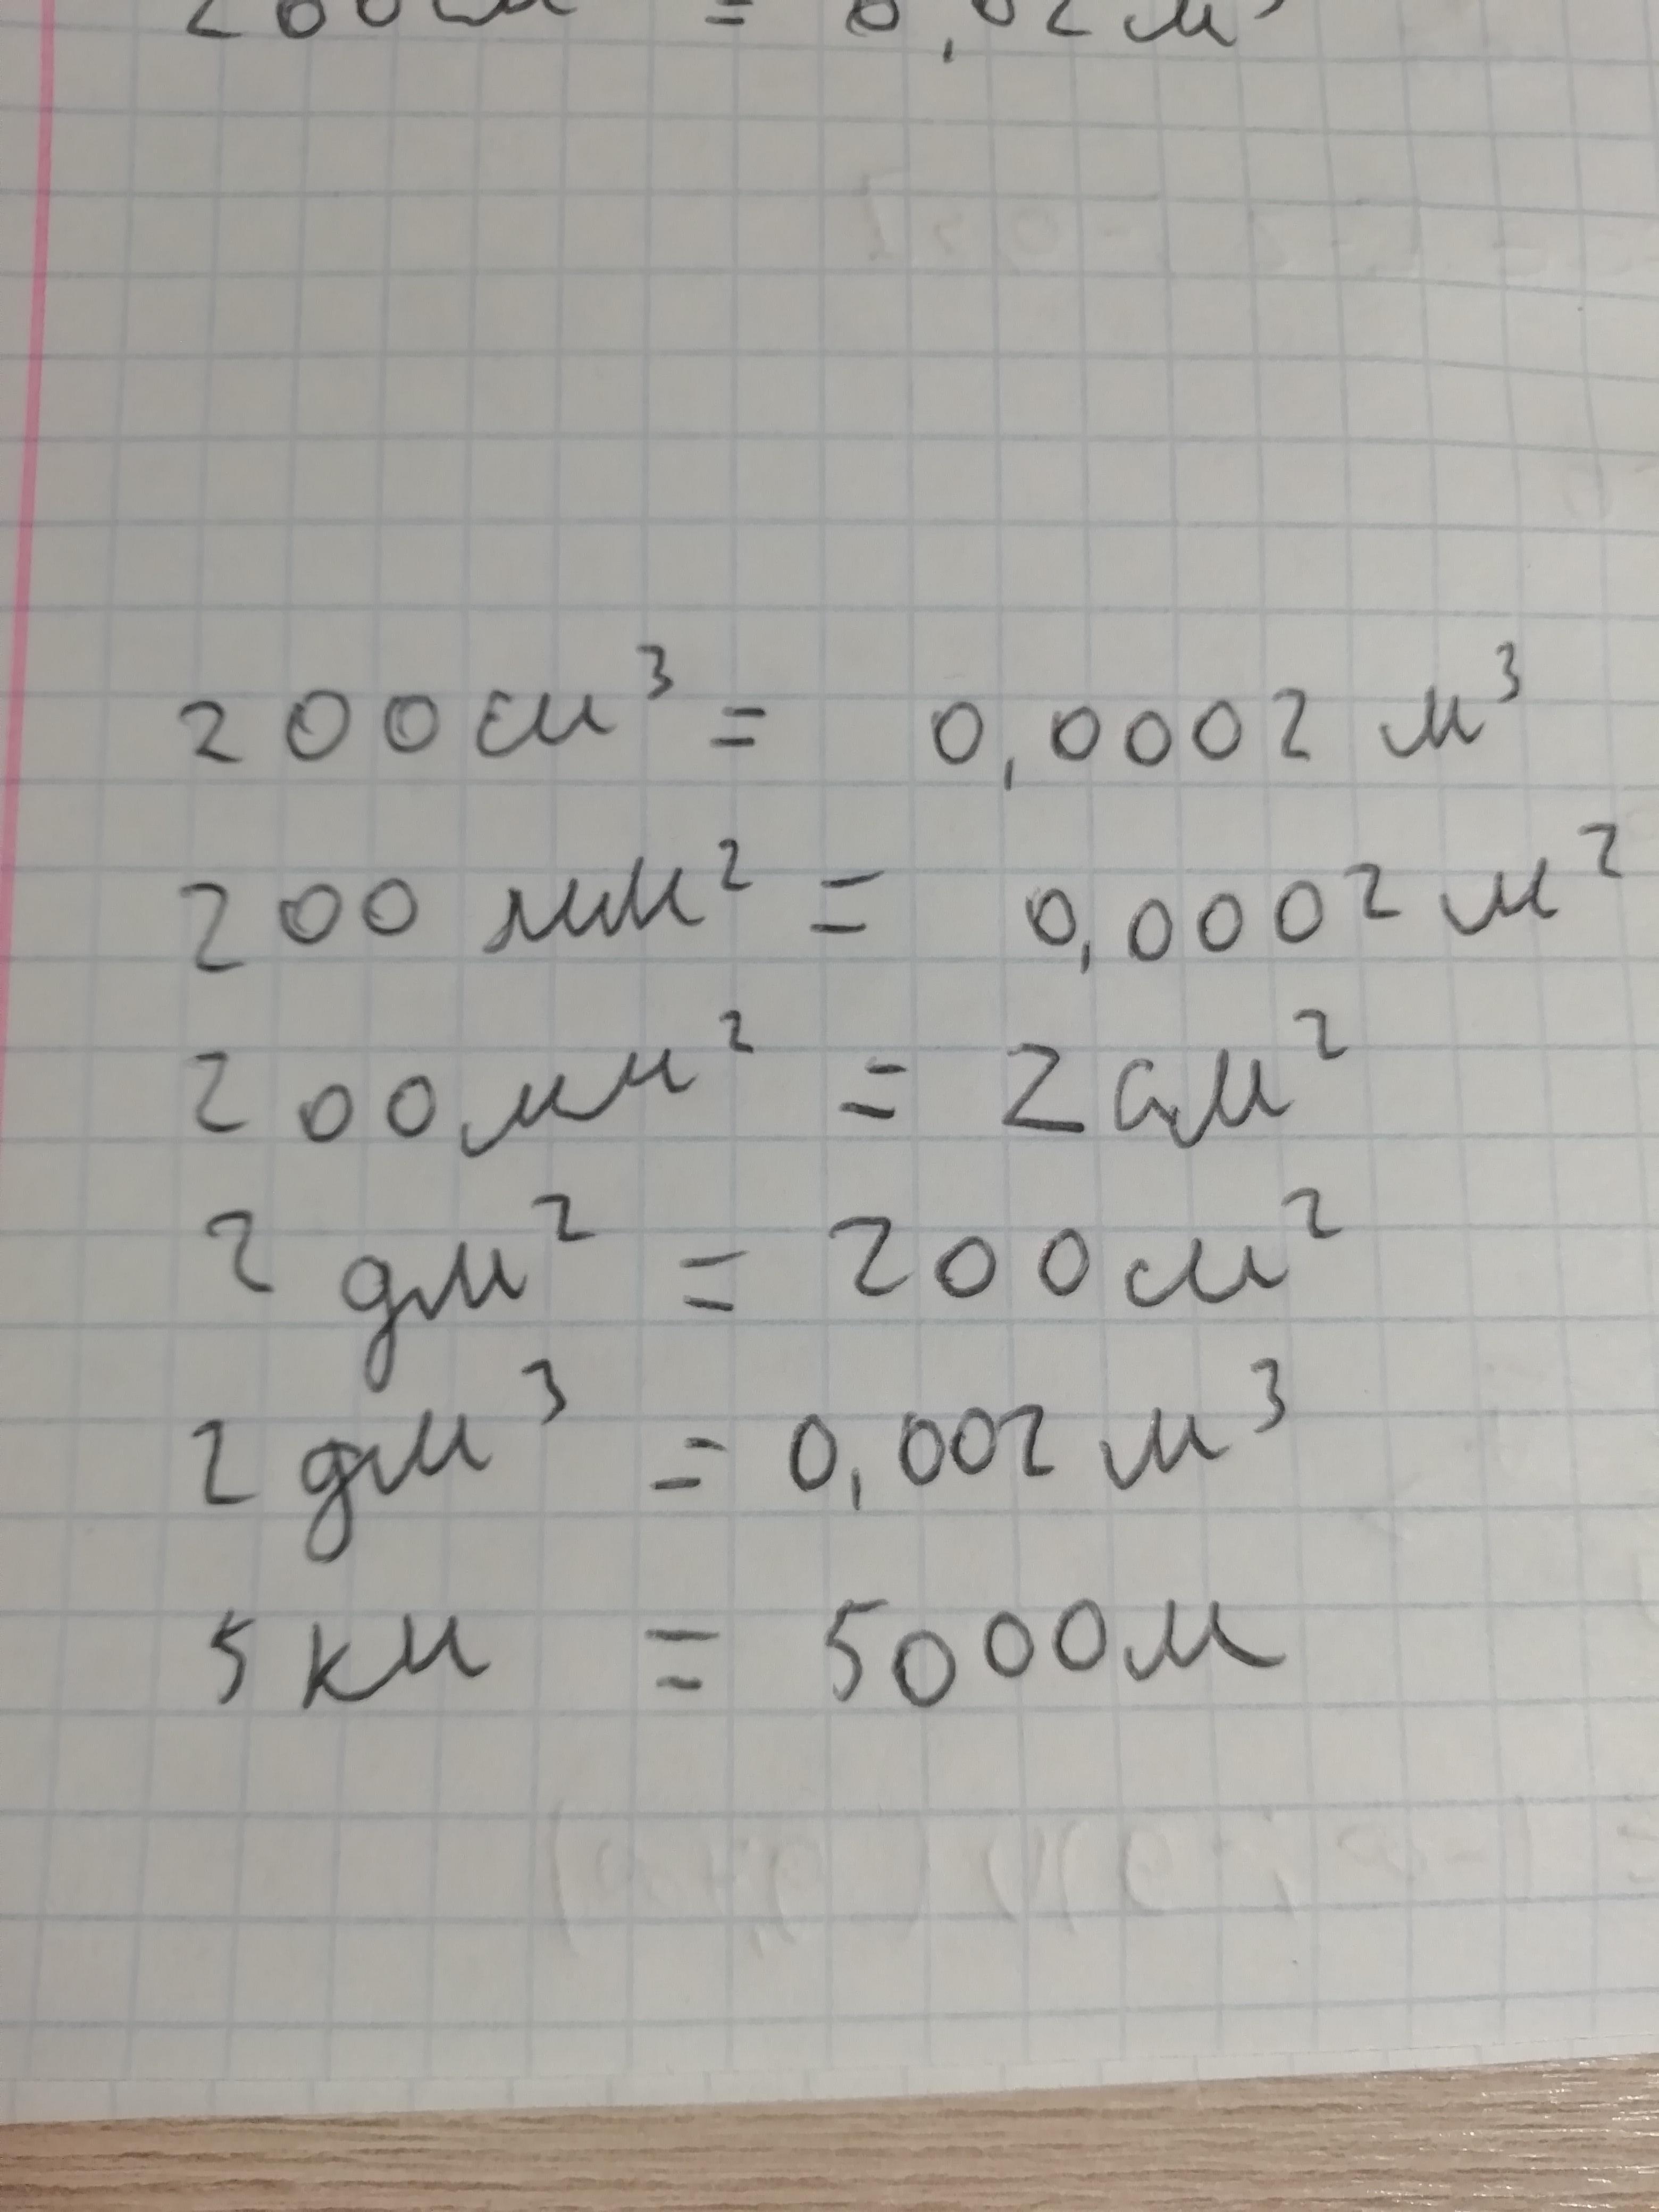 200см³ = 0,0002 м³
200 мм² = 0,0002 м²
200мм² = 2см²
2 дм² = 200см²
2 дм³ = 0,002 м³
5 км = 5000м